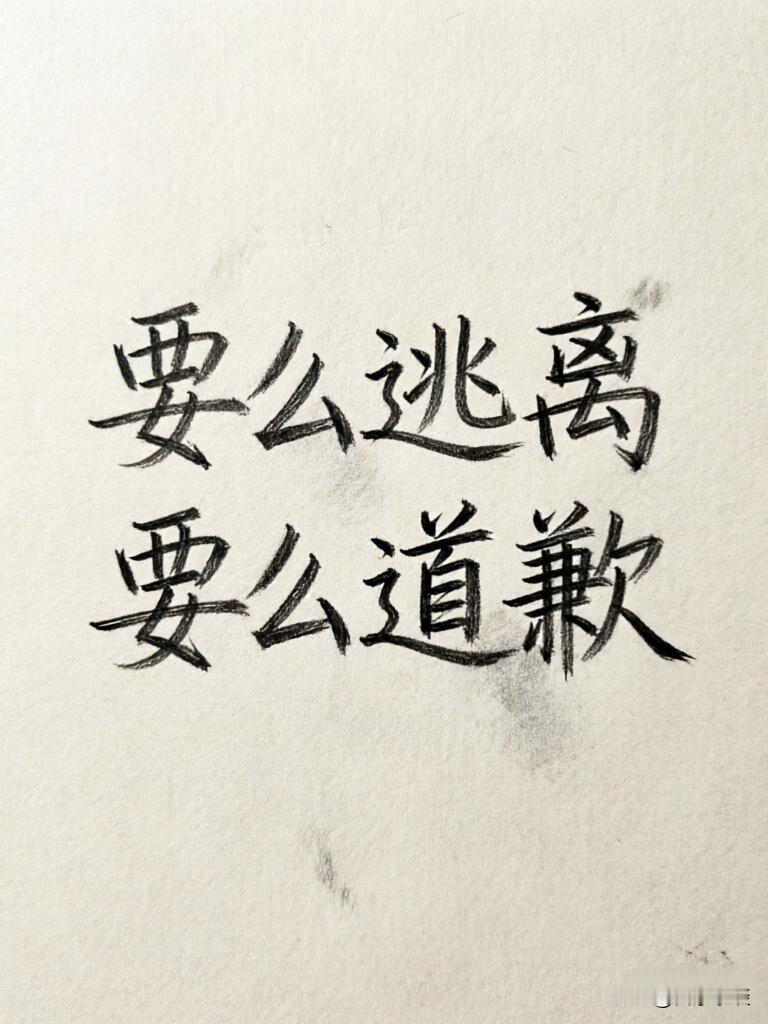 要么逃离
要么道歉